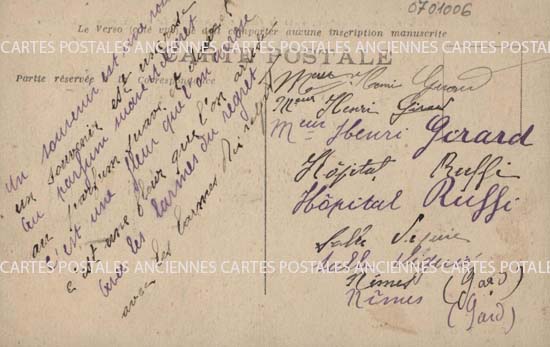 0701006
Le Verso
aucune inscription manuscrite
CARTE POSTALE
Partie réservée
Correspondance
Un souvenir est une rose
un souvenir est une rose
au parfum suave
au parfum suave
C'est une fleur que l'on arrose
c'est une fleur que l'on arrose
avec les larmes du regret
avec les larmes du regret
Henri Girard
Meur Henri Girard
Meur Henri Girard
Hôpital Ruffi
Hôpital Ruffi
Salle
Salle
Nîmes (Gard)
Nîmes (Gard)
CARTES POSTALES ANCIENNES CARTES POSTALES ANCIENNES CARTES POSTALES
CARTES POSTALES ANCIENNES CARTES POSTALES ANCIENNES CARTES POSTALES